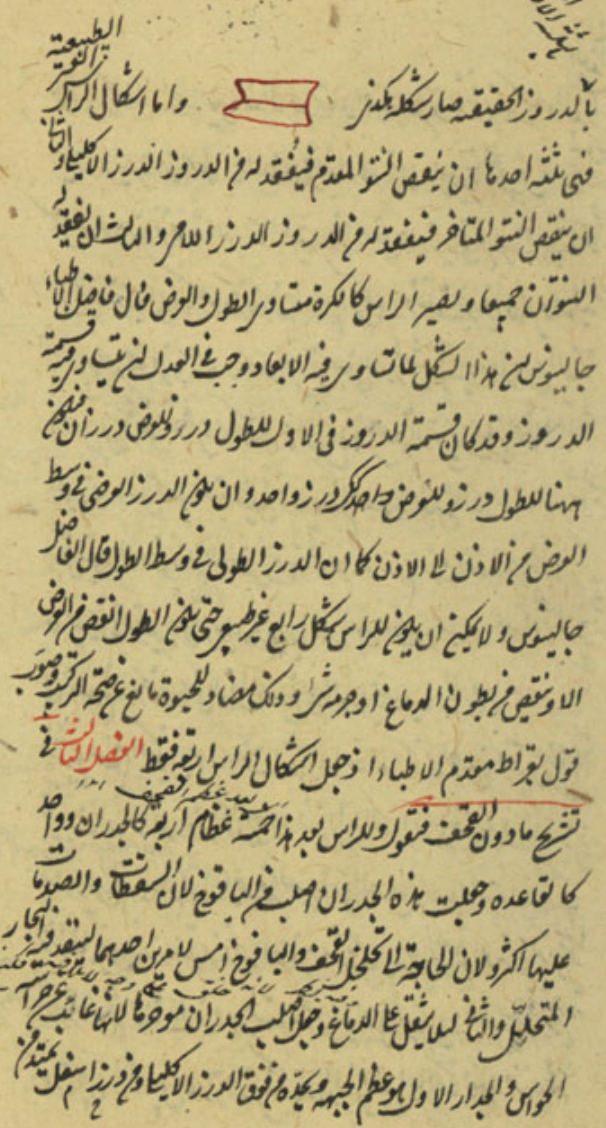 الطبيعية
الغير
بالدروز الحقيقيه صار شكله هكذى واما اشكال الراس
فهى ثلثة احدها ان ينقص النتو المقدم فيفقد له من الدروز الدرز الاكليلى والثانى
ان ينقص النتو المتاخر فينفقد له من الدروز الدرز اللامى والثالث ان يفقد له
النتوان جميعا ويصير الراس كالكرة متساوى الطول والعرض قال فاضل الاطباء
جالينوس ان هذا الشكل لما تساوى فيه الابعاد وجب فى العدل ان يتساوى فيه قسمة
الدروز وقد كان قسمة الدروز فى الاول للطول درز وللعرض درزان فيكون
ههنا للطول درز وللعرض درز واحد وان يكون الدرز العرضى فى وسط
العرض من الاذن الى الاذن كما ان الدرز الطولى فى وسط الطول قال الفاضل
جالينوس ولا يمكن ان يكون للراس شكل رابع غير طبيعى حتى يكون الطول انقص من العرض
الا وينقص من بطون الدماغ او جرمه شئ وذلك مضاد للحيوة مانع عن صحة التركيب وصوب
قول بقراط مقدم الاطباء اذ جعل اشكال الراس اربعة فقط الفصل الثالث فى
تشريح مادون القحف فنقول وللراس بعد هذا خمسة عظام اربعة كالجدران وواحد
كالقاعده وجعلت هذه الجدران اصلب من اليافوخ لان السقطات والصدمات
عليها اكثر ولان الحاجة الى تخلخل القحف واليافوخ امس لامرين احدهما لينفذ فيه البخار
المتحلل والثانى لئلا يثقل على الدماغ وجعل اصلب الجدران موخرها لانها غائب عن حراسة
الحواس والجدار الاول هو عظم الجبهه ويحده من فوق الدرز الاكليلى ومن درز اسفل يمتد من